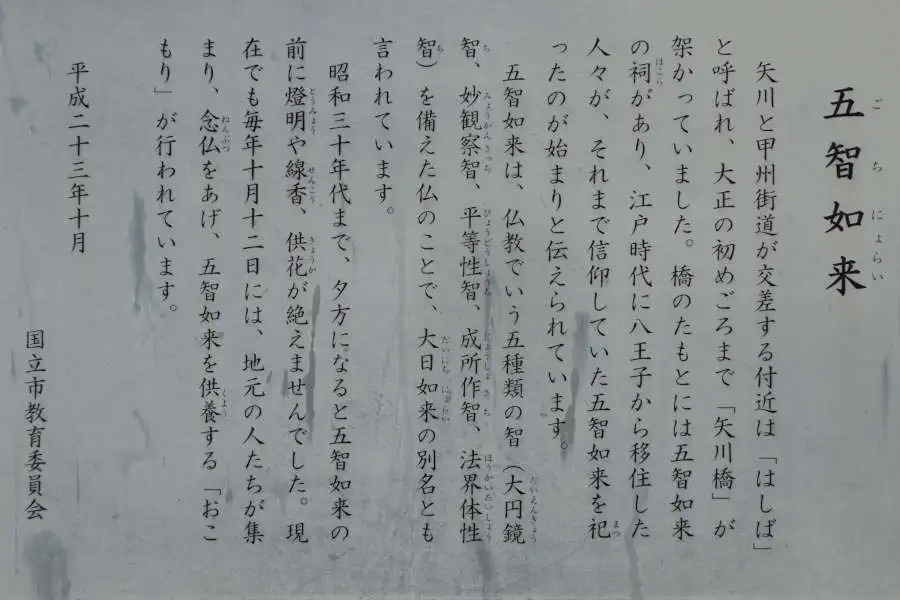 五智如来
矢川と甲州街道が交差する付近は「はしば」
と呼ばれ、大正の初めごろまで「矢川橋」が
架かっていました。橋のたもとには五智如来
の祠があり、江戸時代に八王子から移住した
人々が、それまで信仰していた五智如来を祀
ったのが始まりと伝えられています。
五智如来は、仏教でいう五種類の智（大円鏡
智、妙観察智、平等性智、成所作智、法界体性
智）を備えた仏のことで、大日如来の別名とも
言われています。
昭和三十年代まで、夕方になると五智如来の
前に燈明や線香、供花が絶えませんでした。現
在でも毎年十月十二日には、地元の人たちが集
まり、念仏をあげ、五智如来を供養する「おこ
もり」が行われています。
平成二十三年十月
国立市教育委員会